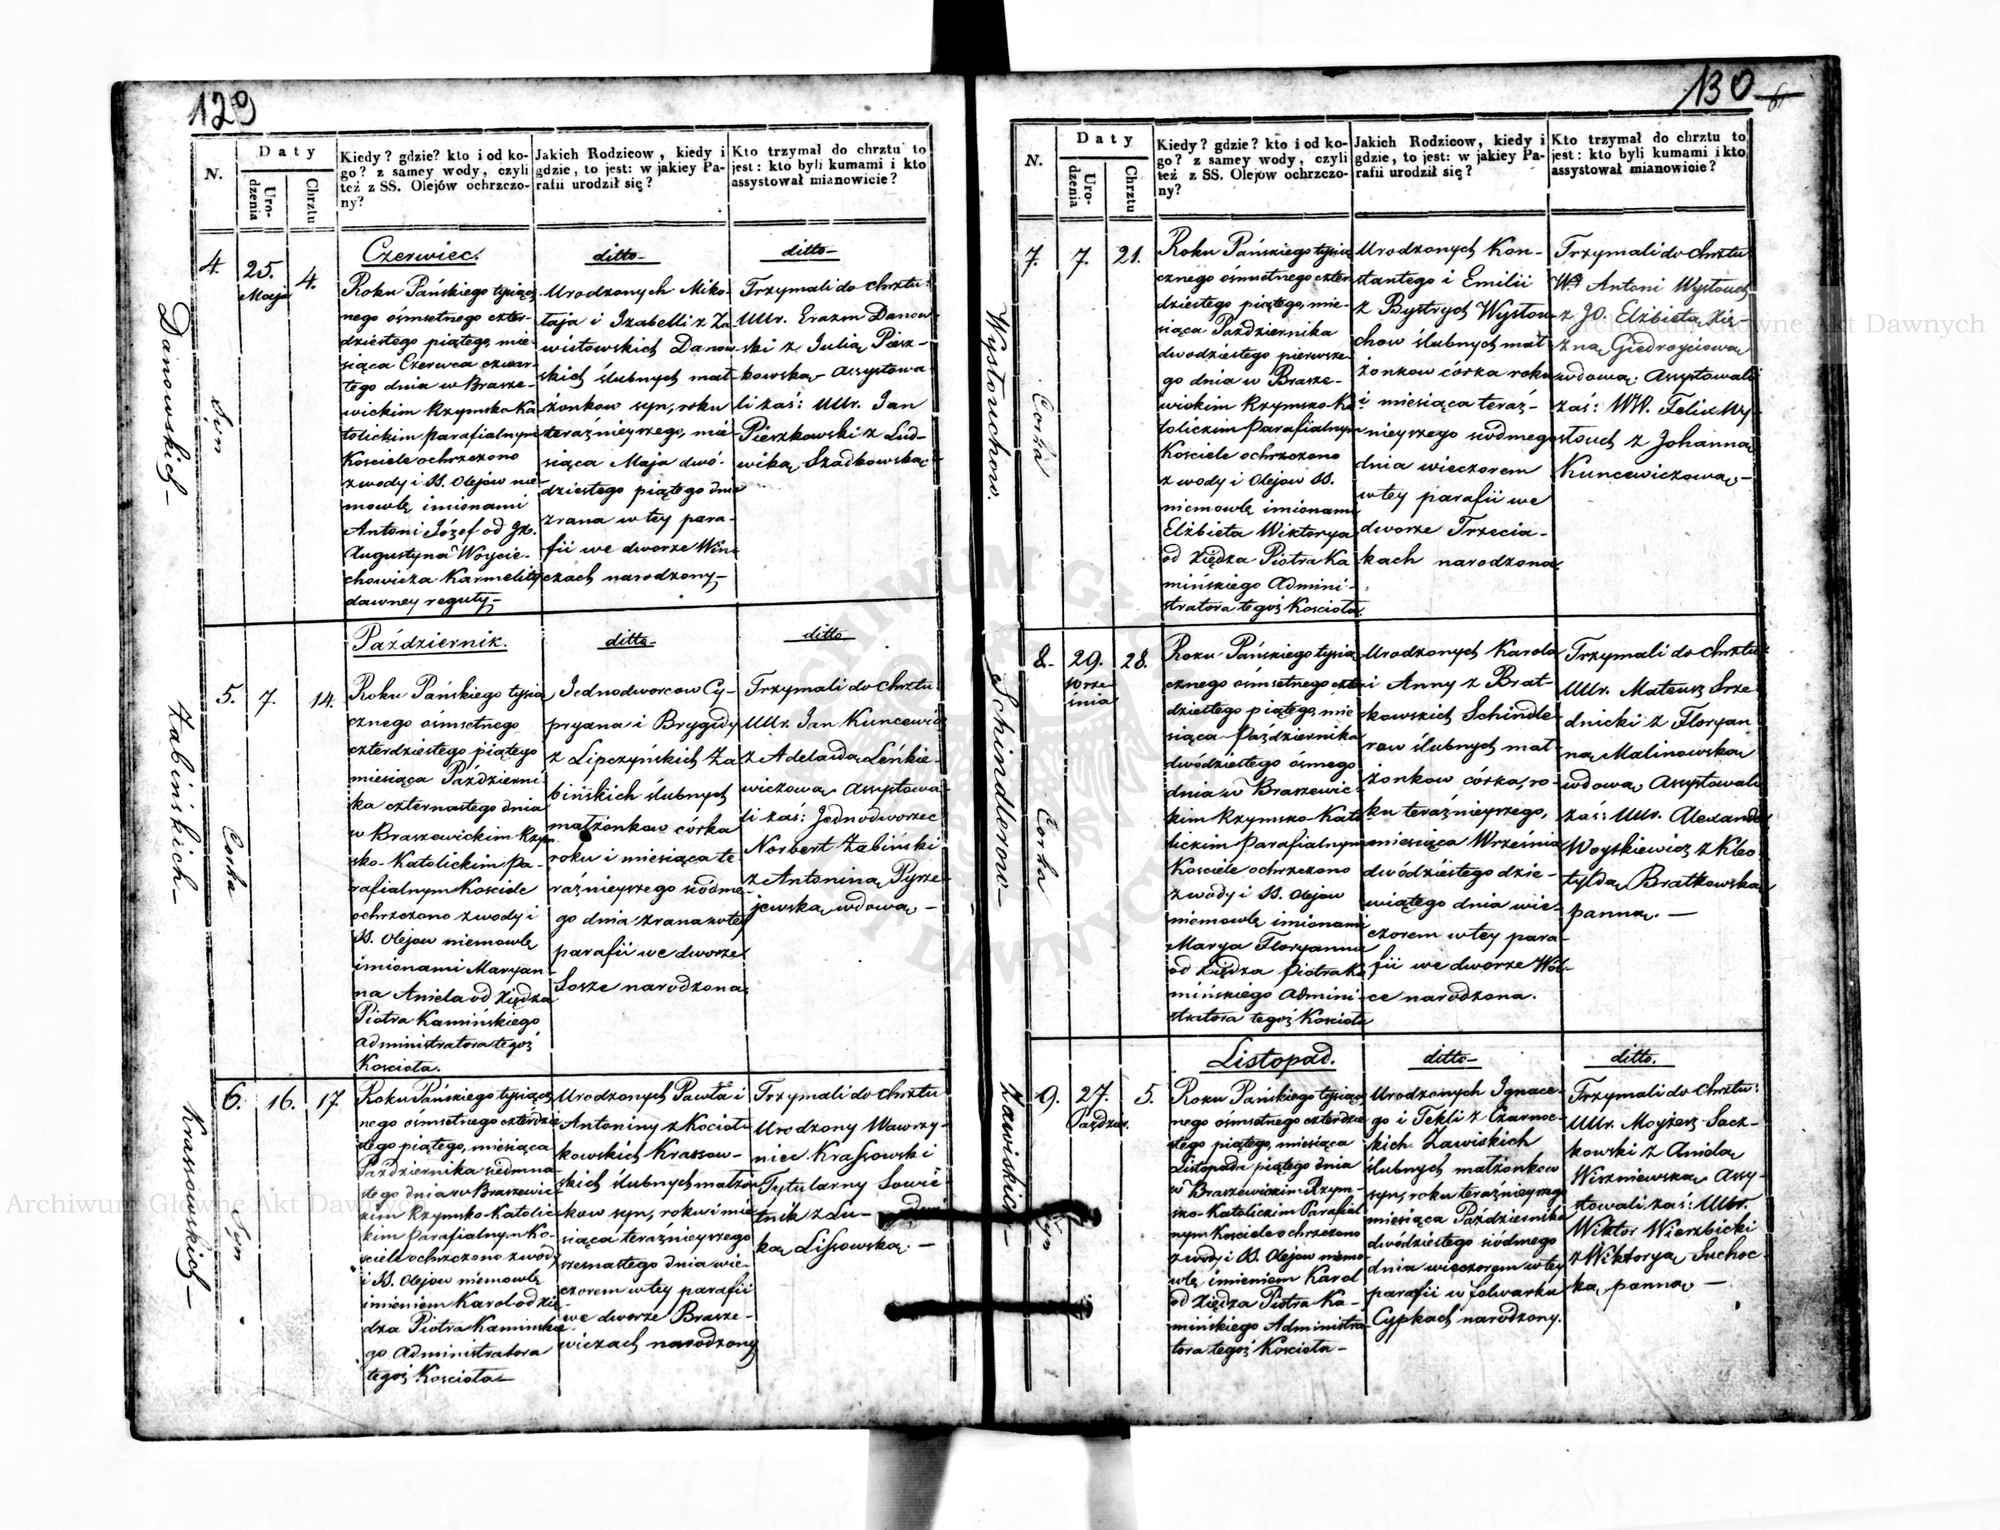 129
N.
Daty
Urodzenia
Chrztu
Kiedy? gdzie? kto i od ko-
go? z samey wody, czyli
też z SS. Olejów ochrzczo-
ny?
Jakich Rodzicow, kiedy i
gdzie, to jest: w jakiey Pa-
rafii urodził się?
Kto trzymał do chrztu to
jest: kto byli kumami i kto
assystował mianowicie?
Danowskich-
Syn
4.
25.
Maja
4.
Czerwiec.
Roku Pańskiego tysiącz-
nego ośmsetnego czter-
dziestego piątego, mie-
siąca Czerwca czwar-
tego dnia w Brasze-
wickim Rzymsko Ka
tolickim parafialnym
Kościele ochrzczono
z wody i SS. Olejów nie-
mowlę imionami
Antoni Józef od Jx.
Augustyna Woycie-
chowicza Karmelity
dawney reguły-
ditto-
Urodzonych Miko-
łaja i Izabelli z Za
wistowskich Danow-
skich ślubnych mał-
żonkow syn, roku
teraźnieyszego, mie-
siąca Maja dwó-
dziestego piątego dnia
zrana w tey para-
fii we dworze Win-
czach narodzony-
ditto-
Trzymali do chrztu:
UUr. Erazm Danow-
ski z Julią Piesz-
kowską- assystowa
li zaś: UUr. Jan
Pieszkowski z Lud-
wiką Szadkowską
Żabińskich-
Corka
5.
7.
14.
Październik.
Roku Pańskiego tysią
cznego ośmsetnego
czterdziestego piątego
miesiąca Październi
ka czternastego dnia
w Braszewickim Rzym
sko-Katolickim Pa-
rafialnym Kościele
ochrzczono z wody i
SS. Olejow niemowlę
imionami Maryan-
na Aniela od Xiędza
Piotra Kamińskiego
administratora tegoż
Kościoła.
ditto-
Jednodworcow Cy-
pryana i Brygidy
z Lipczyńskich Ża
bińskich ślubnych
małżonkow córka
roku i miesiąca te
raźnieyszego siódme-
go dnia zrana w tey
parafii we dworze
Sosze narodzona.
ditto
Trzymali do chrztu
UUr. Jan Kuncewicz
z Adelaidą Leńkie-
wiczową assystowa-
li zaś: Jednodworzec
Norbert Żabiński
z Antoniną Pyrze-
jewską wdową-
Krassowskich-
Syn
6.
16.
17.
Roku Pańskiego tysiącz
nego ośmsetnego czterdzie
stego piątego, miesiąca
Października siedmna-
stego dnia w Braszewic
kim Rzymsko-Katolic-
kim Parafialnym Ko-
ściele ochrzczono z wody
i SS. Olejow niemowlę
imieniem Karol od Xię-
dza Piotra Kamińskie
go Administratora
tegoż Kościoła-
Urodzonych Pawła i
Antoniny z Kocioł-
kowskich Krassow-
skich ślubnych małżon
kow syn, roku i mie
siąca teraźnieyszego
szesnastego dnia wie-
czorem w tey parafii
we dworze Brasze-
wiczach narodzony
Trzymali do chrztu
Urodzony Wawrzy-
niec Krassowski
Tytularny Sowie
tnik z Lu-
ką Lissowską.-
130
N.
Daty
Urodzenia
Chrztu
Kiedy? gdzie? kto i od ko-
go? z samey wody, czyli
też z SS. Olejów ochrzczo-
ny?
Jakich Rodzicow, kiedy i
gdzie, to jest: w jakiey Pa-
rafii urodził się?
Kto trzymał do chrztu to
jest: kto byli kumami i kto
assystował mianowicie?
Wysłouchow.
Corka
7.
7.
21.
Roku Pańskiego tysią
cznego ośmsetnego czter
dziestego piątego, mie-
siąca Października
dwodziestego pierwsze-
go dnia w Brasze-
wickim Rzymsko-Ka
tolickim Parafialnym
Kościele ochrzczono
z wody i Olejow SS.
niemowlę imionami
Elżbieta Wiktorya
od Xiędza Piotra Ka
mińskiego Admini-
stratora tegoż Kościoła.
Urodzonych Kon-
stantego i Emilii
z Bystrych Wysłou-
chow ślubnych mał
żonkow córka roku
i miesiąca teraź-
nieyszego siodmego
dnia wieczorem
w tey parafii we
dworze Trzecia-
kach narodzona.
Trzymali do chrztu
Antoni Wysłouch
z JO. Elżbietą Xię-
żną Giedroyciową
wdową. Assystowali
zaś: WW. Felix Wy-
słouch z Johanną
Kuncewiczową-
Schindlerow-
Corka
8.
29.
Wrze-
śnia
28.
Roku Pańskiego tysią
cznego ośmsetnego czter
dziestego piątego, mie
siąca Października
dwódziestego ósmego
dnia w Braszewic-
kim Rzymsko-Kato
lickim Parafialnym
Kościele ochrzczono
z wody i SS. Olejow
niemowlę imionami
Marya Floryanna
od Xiędza Piotra Ka
mińskiego Admini-
stratora tegoż Kościoła
Urodzonych Karola
i Anny z Brat-
kowskich Schindle-
row ślubnych mał-
żonkow córka, ro-
ku teraźnieyszego,
miesiąca Września
dwódziestego dzie-
wiątego dnia wie-
czorem w tey para-
fii we dworze Wól-
ce narodzona.
Trzymali do chrztu:
UUr. Mateusz Srze
dnicki z Floryan
ną Malinowską
wdową Assystowali
zaś: UUr. Alexander
Woyskiewicz z Kleo-
tyldą Bratkowską
panną.-
Zawiskich-
Syn
9.
27.
Paździer.
5.
Listopad.
Roku Pańskiego tysiącz
nego ośmsetnego czterdzie
stego piątego, miesiąca
Listopada piątego dnia
w Braszewickim Rzym-
sko-Katolickim Parafial
nym Kościele ochrzczono
z wody i SS. Olejow niemo-
wlę imieniem Karol
od Xiędza Piotra Ka-
mińskiego Administra-
tora tegoż Kościoła-
ditto-
Urodzonych Ignace-
go i Tekli z Czarnec-
kich Zawiskich
ślubnych małżonkow
syn, roku teraźnieyszego
miesiąca Października
dwódziestego siódmego
dnia wieczorem w tey
parafii w folwarku
Cypkach narodzony.
ditto.
Trzymali do chrztu:
UUr. Moyżesz Sacz-
kowski z Anielą
Wiszniewską assy-
stowali zaś: UUr.
Wiktor Wierzbicki
z Wiktoryą Suchoc-
ką panną-
Archiwum Główne Akt Dawnych
Archiwum Główne Akt Dawnych